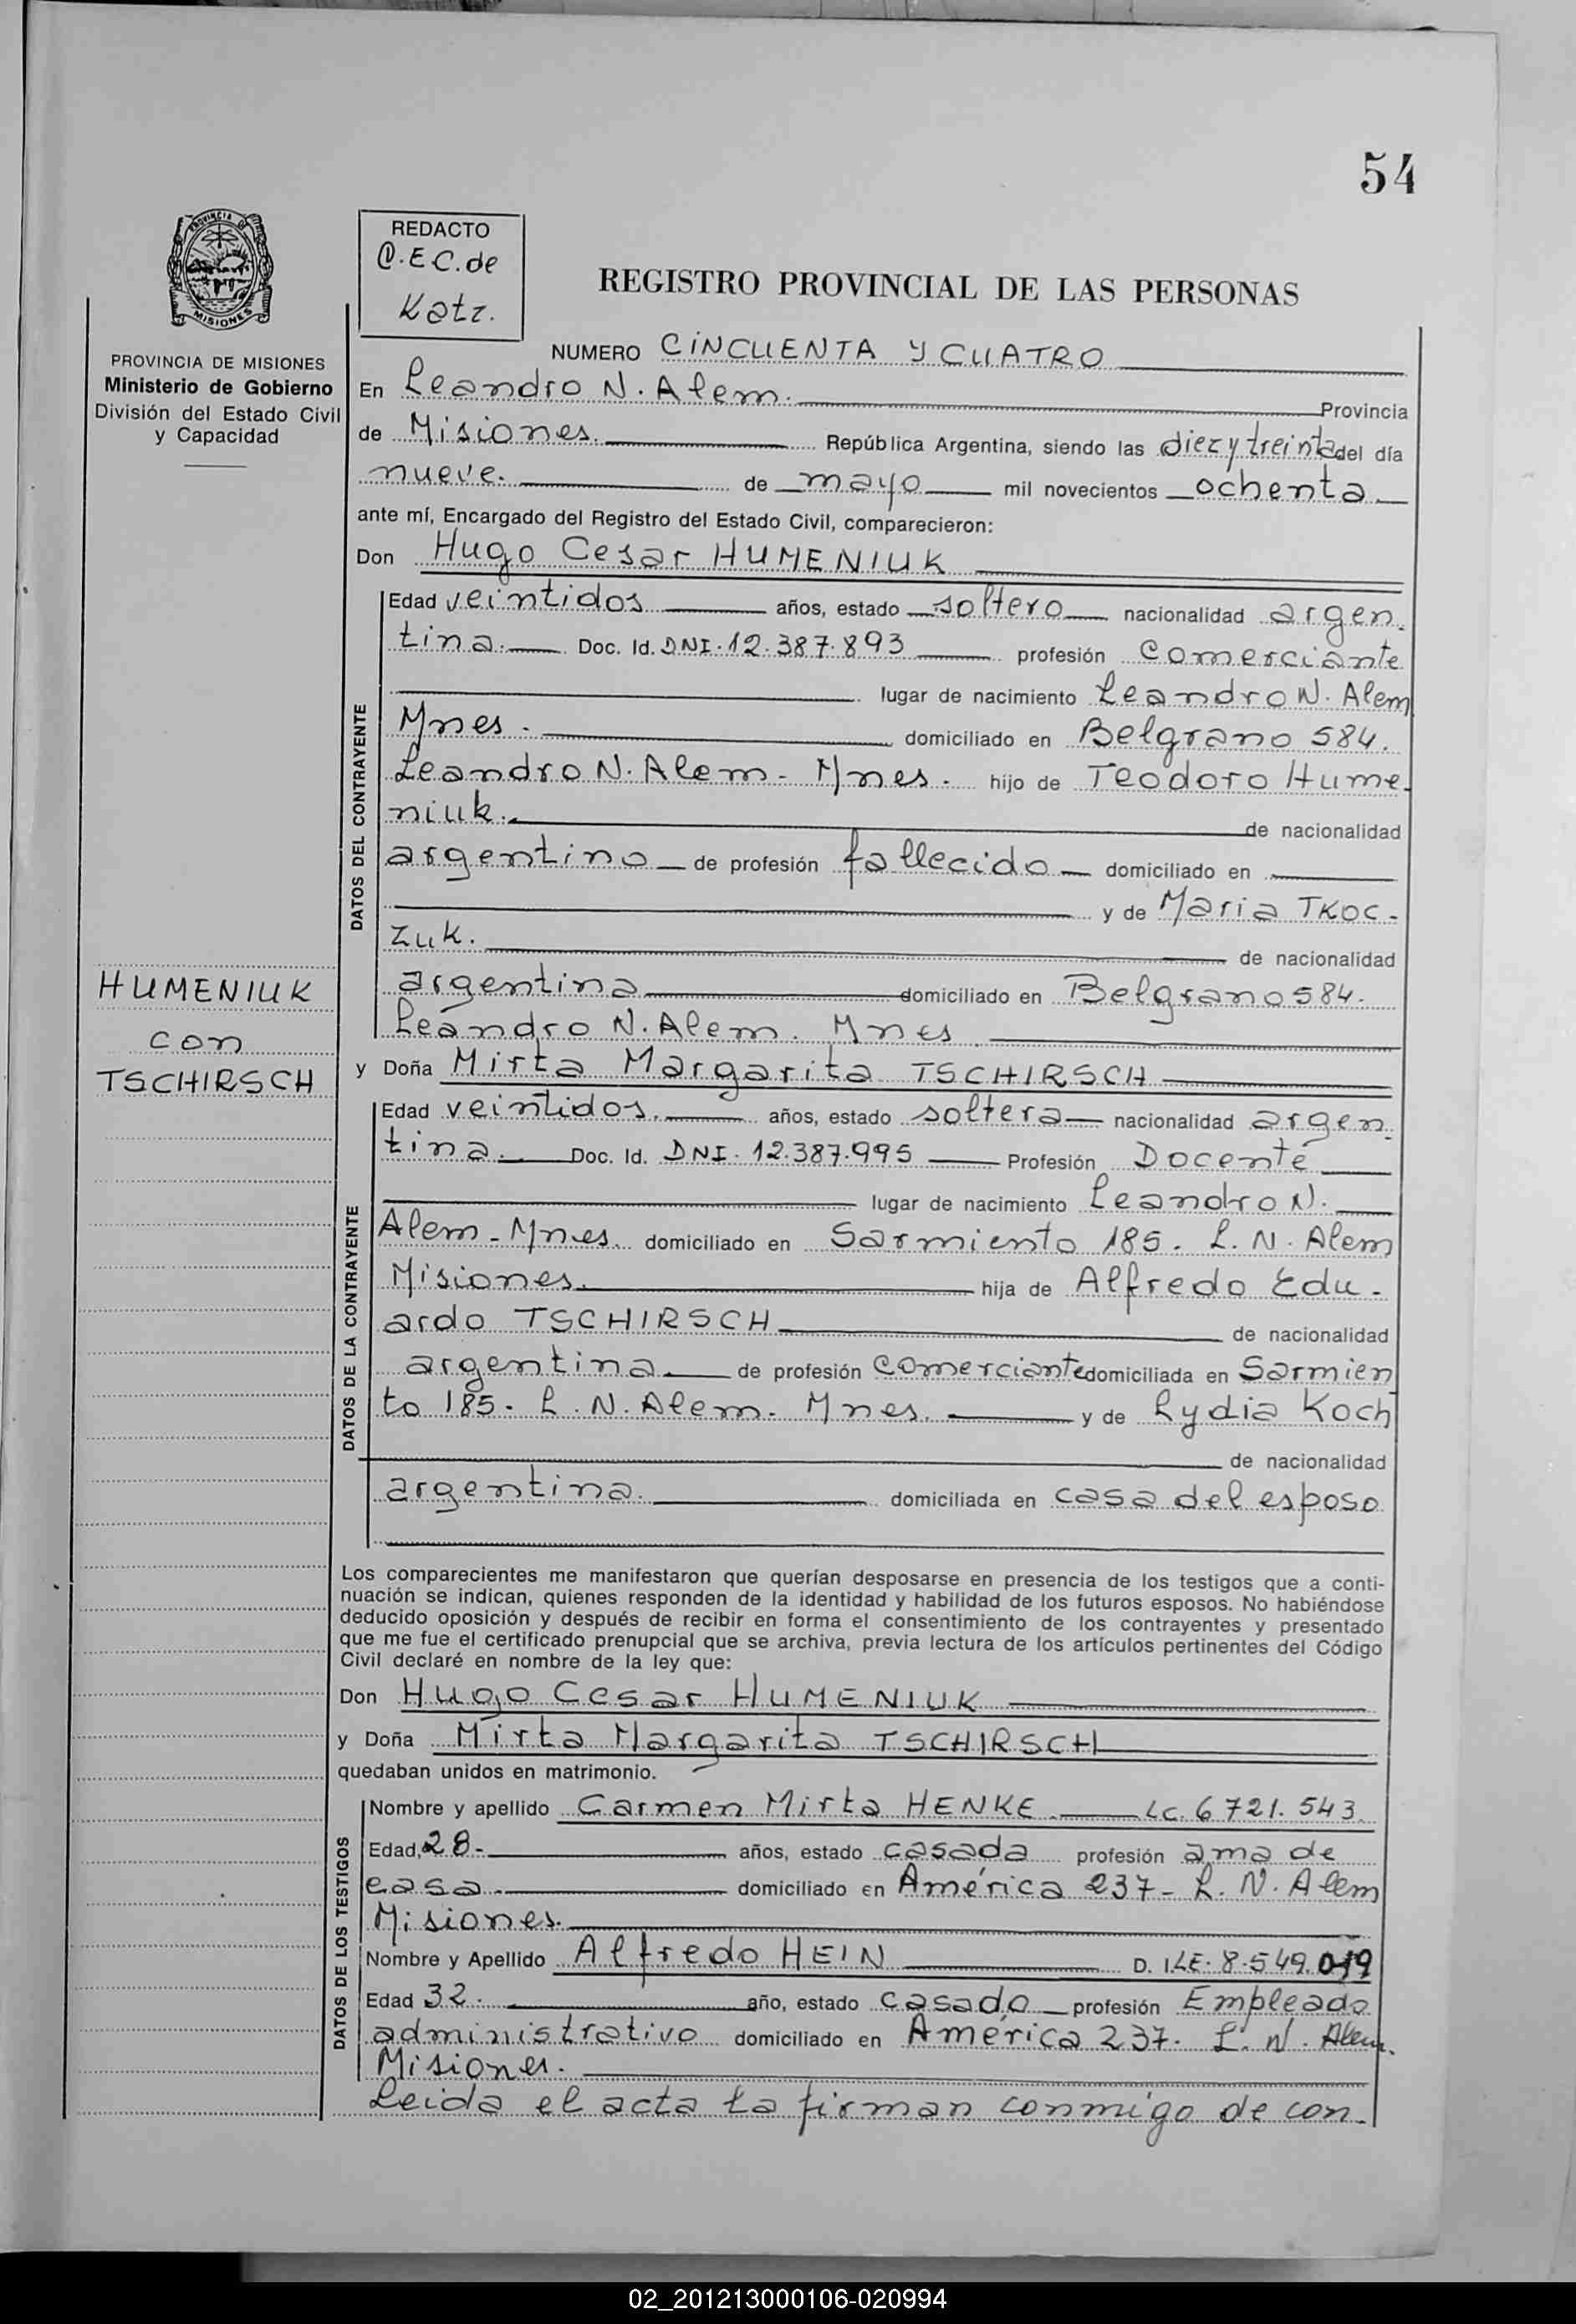 54
PROVINCIA DE
MISIONES
REDACTO
O.E.C. de
Katz.
REGISTRO PROVINCIAL DE LAS PERSONAS
PROVINCIA DE MISIONES
Ministerio de Gobierno
División del Estado Civil
y Capacidad
NUMERO CINCUENTA Y CUATRO
En Leandro N. Alem. Provincia
de Misiones. República Argentina, siendo las diez y treinta del día
nueve. de mayo mil novecientos ochenta
ante mí, Encargado del Registro del Estado Civil, comparecieron:
Don Hugo Cesar HUMENIUK
DATOS DEL CONTRAYENTE
Edad veintidos años, estado soltero nacionalidad argen-
tina. Doc. Id. DNI. 12.387.893 profesión Comerciante
lugar de nacimiento Leandro N. Alem
Mnes. domiciliado en Belgrano 584.
Leandro N. Alem - Mnes. hijo de Teodoro Hume-
niuk. de nacionalidad
argentino de profesión fallecido domiciliado en
y de Maria TKOC-
zuk. de nacionalidad
argentina domiciliado en Belgrano 584.
Leandro N. Alem. Mnes
HUMENIUK
con
TSCHIRSCH
y Doña Mirta Margarita TSCHIRSCH
DATOS DE LA CONTRAYENTE
Edad veintidos. años, estado soltera nacionalidad argen-
tina. Doc. Id. DNI. 12.387.995 Profesión Docente
lugar de nacimiento Leandro N.
Alem - Mnes. domiciliado en Sarmiento 185. L. N. Alem
Misiones. hija de Alfredo Edu-
ardo TSCHIRSCH de nacionalidad
argentina de profesión comerciante domiciliada en Sarmien
to 185. L. N. Alem. Mnes. y de Lydia Koch
de nacionalidad
argentina. domiciliada en casa del esposo
Los comparecientes me manifestaron que querían desposarse en presencia de los testigos que a conti-
nuación se indican, quienes responden de la identidad y habilidad de los futuros esposos. No habiéndose
deducido oposición y después de recibir en forma el consentimiento de los contrayentes y presentado
que me fue el certificado prenupcial que se archiva, previa lectura de los artículos pertinentes del Código
Civil declaré en nombre de la ley que:
Don Hugo Cesar HUMENIUK
y Doña Mirta Margarita TSCHIRSCH
quedaban unidos en matrimonio.
DATOS DE LOS TESTIGOS
Nombre y apellido Carmen Mirta HENKE LC. 6.721.543.
Edad, 28. años, estado casada profesión ama de
casa. domiciliado en América 237 - L. N. Alem
Misiones.
Nombre y Apellido Alfredo HEIN D. I. LE. 8.549.019
Edad 32. año, estado casado profesión Empleado
administrativo domiciliado en América 237. L. N. Alem.
Misiones.
Leida el acta la firman conmigo de con-
02_201213000106-020994